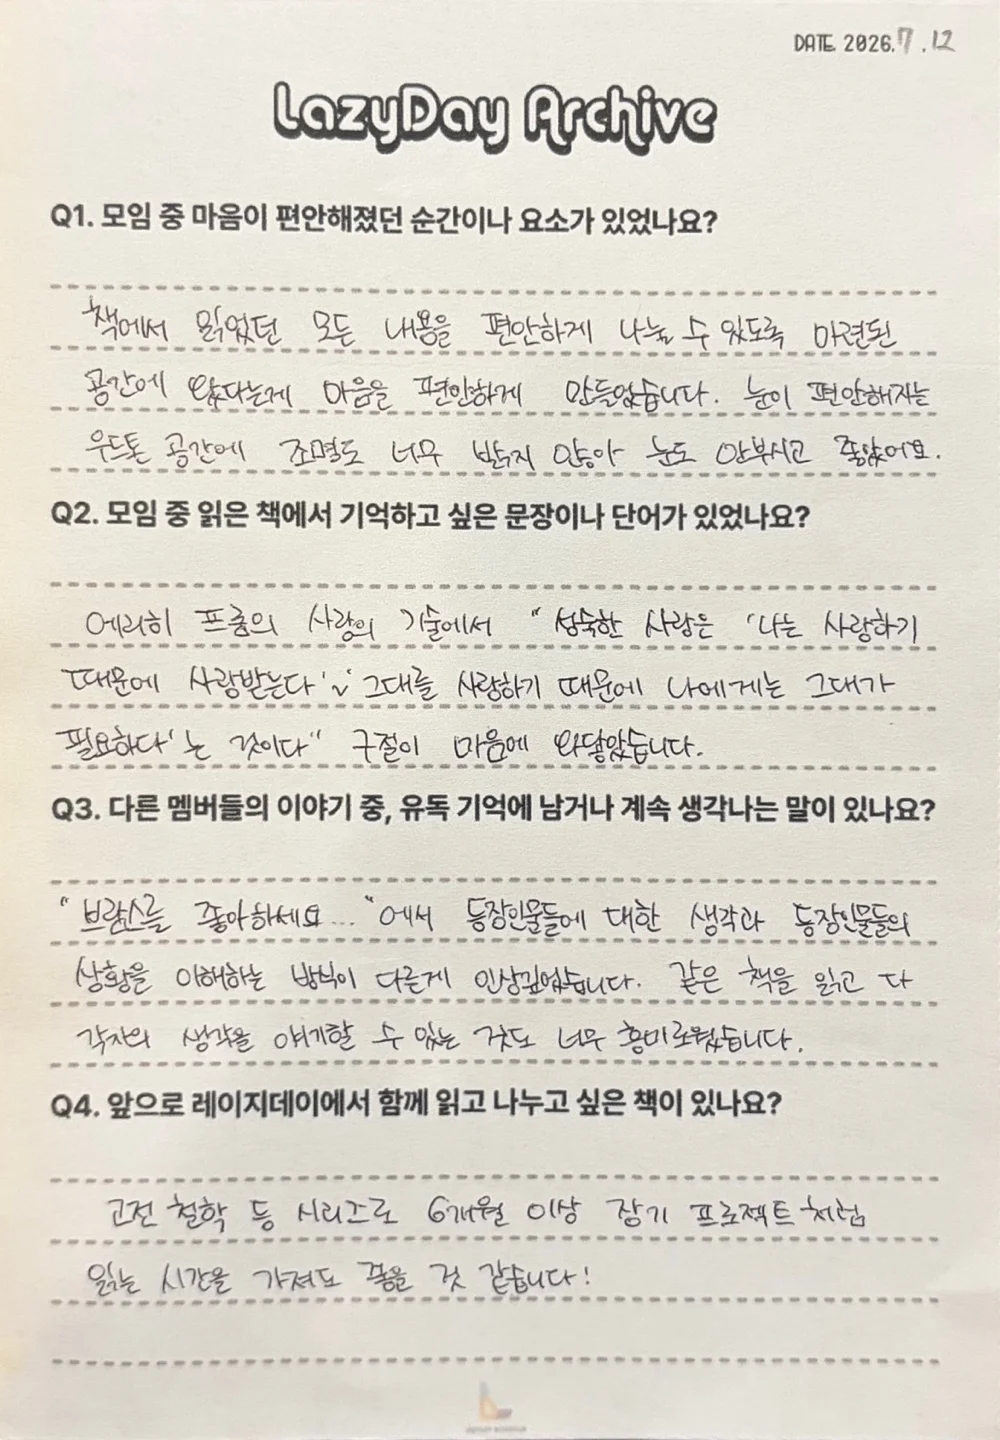 DATE 2026.7.12
LazyDay Archive
Q1. 모임 중 마음이 편안해졌던 순간이나 요소가 있었나요?
책에서 읽었던 모든 내용을 편안하게 나눌 수 있도록 마련된
공간에 왔다는게 마음을 편안하게 만들었습니다. 눈이 편안해지는
우드톤 공간에 조명도 너무 밝지 않아 눈도 안부시고 좋았어요.
Q2. 모임 중 읽은 책에서 기억하고 싶은 문장이나 단어가 있었나요?
에리히 프롬의 사랑의 기술에서 "성숙한 사랑은 '나는 사랑하기
때문에 사랑받는다', '그대를 사랑하기 때문에 나에게는 그대가
필요하다'는 것이다" 구절이 마음에 와닿았습니다.
Q3. 다른 멤버들의 이야기 중, 유독 기억에 남거나 계속 생각나는 말이 있나요?
"브람스를 좋아하세요..."에서 등장인물들에 대한 생각과 등장인물들의
상황을 이해하는 방식이 다른게 인상깊었습니다. 같은 책을 읽고 다
각자의 생각을 얘기할 수 있는 것도 너무 흥미로웠습니다.
Q4. 앞으로 레이지데이에서 함께 읽고 나누고 싶은 책이 있나요?
고전 철학 등 시리즈로 6개월 이상 장기 프로젝트처럼
읽는 시간을 가져도 좋을 것 같습니다!